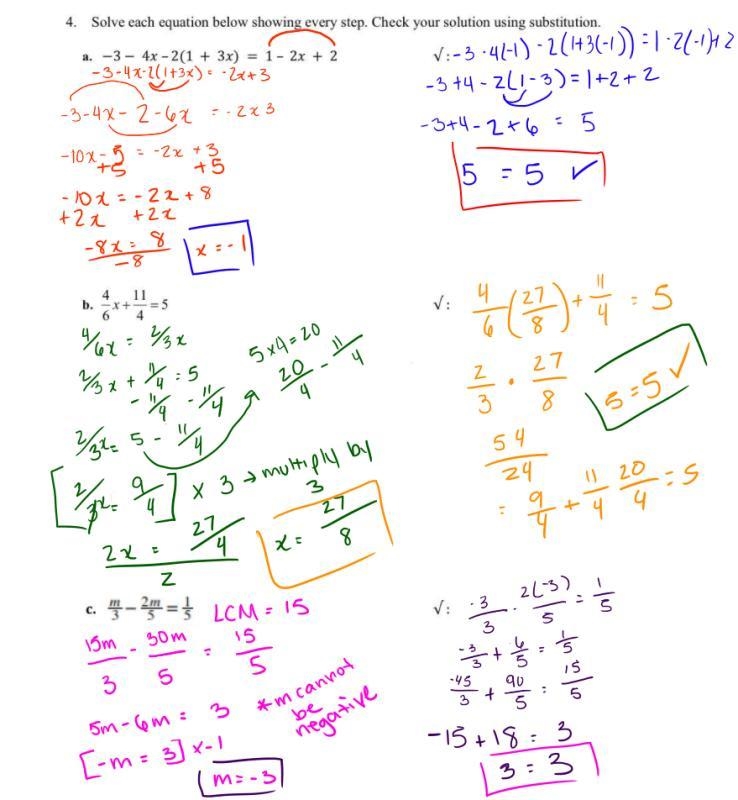 4. Solve each equation below showing every step. Check your solution using substitution.
a. −3 − 4x −2(1 + 3x) = 1− 2x + 2
-3-4x-2(1+3x) = -2x+3
-3-4x- 2 -6x = -2x 3
-10x-5 = -2x +3
+5 +5
-10x = -2x + 8
+2x +2x
-8x = 8
-8
x = -1
√: -3 - 4(-1) - 2(1+3(-1)) = 1 - 2(-1)+2
-3+4-2(1-3)=1+2+2
-3+4-2+6 = 5
5 = 5 ✓
b. 4/6 x + 11/4 = 5
4/6x = 2/3x
2/3x + 11/4 = 5
- 11/4 - 11/4
2/3x = 5 - 11/4
5x4=20
20/4 - 11/4
[2/3x = 9/4] x 3 → multiply by 3
2x = 27/4
2
x = 27/8
√: 4/6 (27/8) + 11/4 = 5
2/3 · 27/8
54/24
= 9/4 + 11/4 20/4 = 5
5=5 ✓
c. m/3 − 2m/5 = 1/5 LCM = 15
15m/3 - 30m/5 = 15/5
5m-6m = 3
*m cannot be negative
[-m = 3] x-1
m=-3
√: -3/3 - 2(-3)/5 = 1/5
-3/3 + 6/5 = 1/5
-45/3 + 90/5 = 15/5
-15+18 = 3
3 = 3